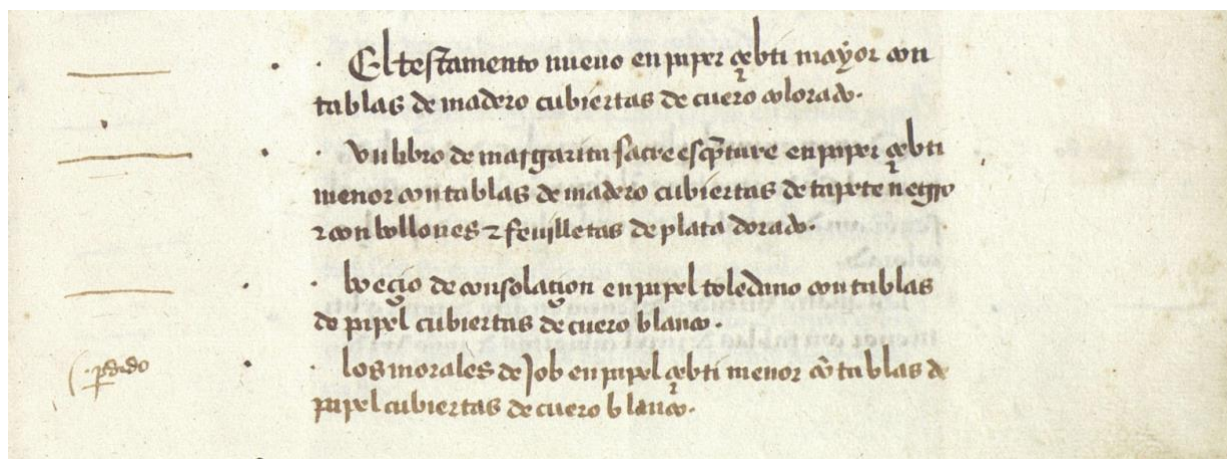 El testamento nueuo en paper çebti mayor con
tablas de madero cubiertas de cuero colorado.
vn libro de margarita sacre escpture en paper çebti
menor con tablas de madero cubiertas de tapete negro
z con bollones z feuilletas de plata dorado.
boeçio de consolaçion en papel toledano con tablas
de papel cubiertas de cuero blanco.
pdido
los morales de Job en papel çebti menor cõ tablas de
papel cubiertas de cuero blanco.